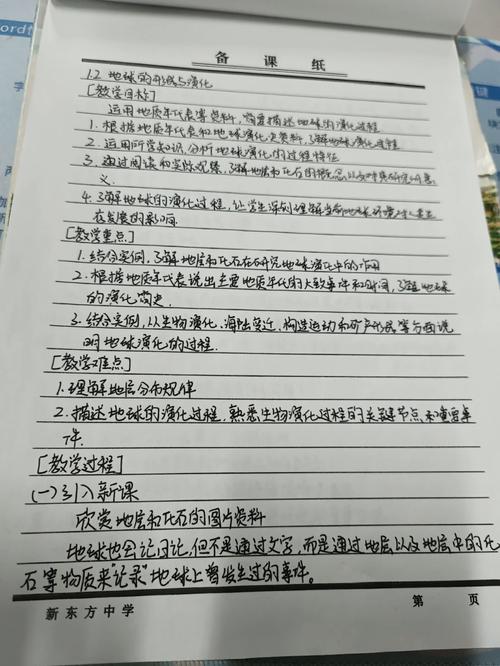 备课纸
1.2 地球的形成与演化
[教学目标]
运用地质年代表等资料，简要描述地球的演化过程
1. 根据地质年代表和地球演化史资料，了解地球演化过程
2. 运用所学知识，分析地球演化的过程特征
3. 通过阅读和实际观察，了解地层和化石的概念以及研究意
义.
4. 了解地球的演化过程，让学生深刻理解当前地球环境
在发展的瞬间.
[教学重点]
1. 结合实例，了解地层和化石在研究地球演化中的作用
2. 根据地质年代表说出主要地质年代的大致事件和时间，了解地球
的演化简史.
3. 结合实例，从生物演化、海陆变迁、构造运动和矿产形成等方面说
明地球演化的过程.
[教学难点]
1. 理解地层分布规律
2. 描述地球的演化过程，熟悉生物演化过程的关键节点和重要事
件.
[教学过程]
(一) 引入新课
欣赏地层和化石的图片资料
地球也会记日记，但不是通过文字，而是通过地层以及地层中的化
石等物质来"记录"地球上曾发生过的事件。
新东方中学
第 页